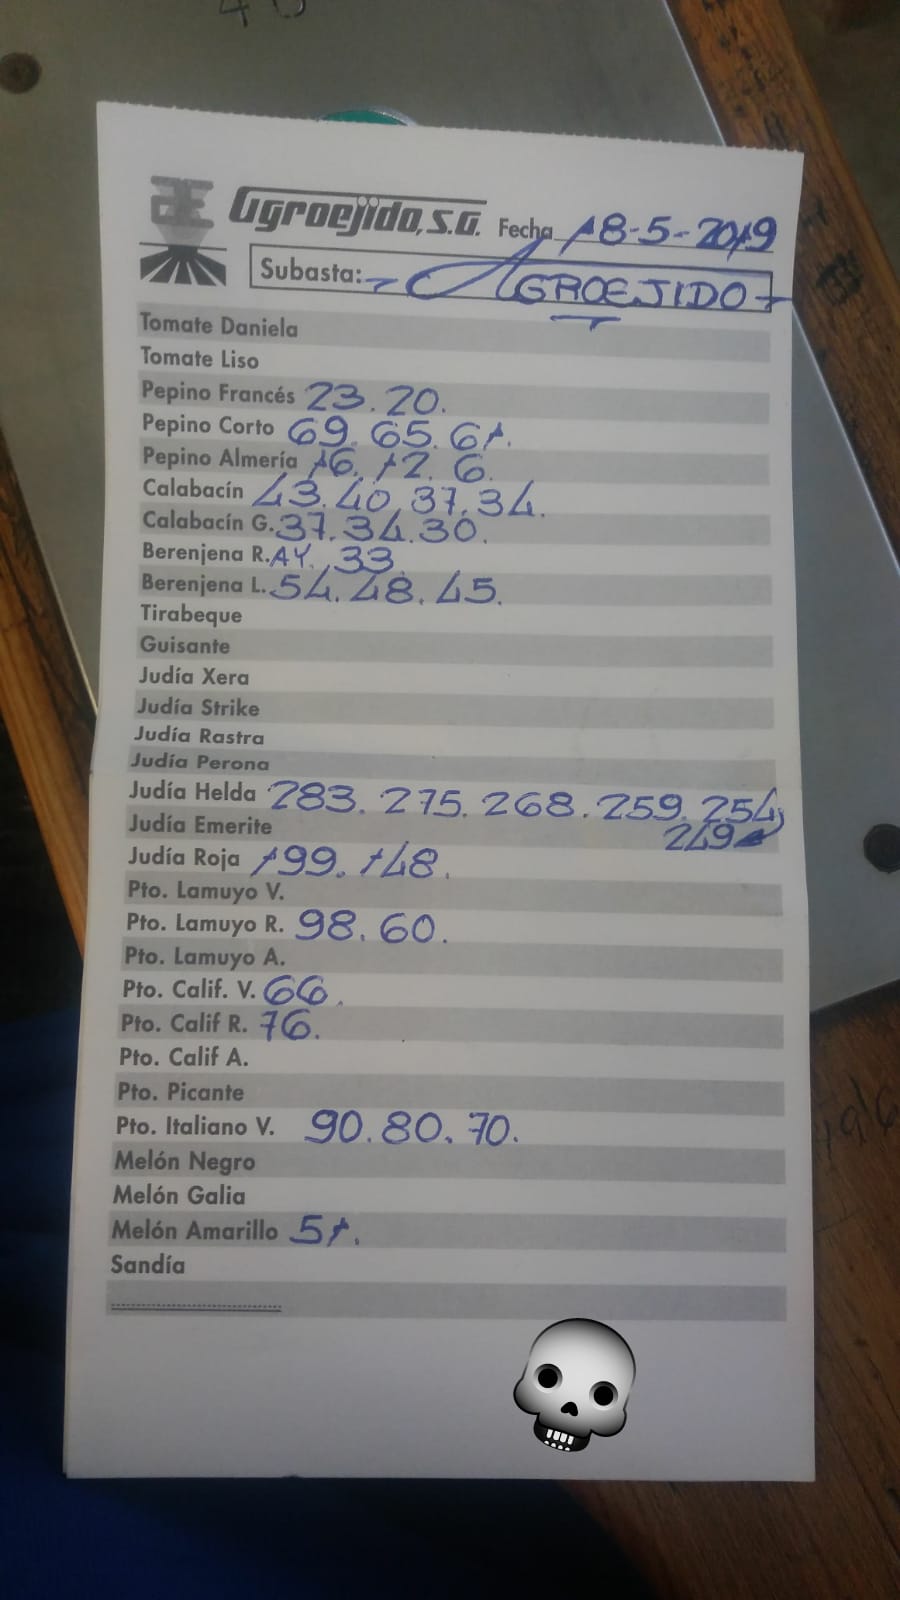 Agroejido, S.A. Fecha 18-5-2019
Subasta: AGROEJIDO
Tomate Daniela
Tomate Liso
Pepino Francés 23. 20.
Pepino Corto 69. 65. 61.
Pepino Almería 16. 12. 6.
Calabacín 43. 40. 37. 34.
Calabacín G. 37. 34. 30.
Berenjena R. AY. 33
Berenjena L. 54. 48. 45.
Tirabeque
Guisante
Judía Xera
Judía Strike
Judía Rastra
Judía Perona
Judía Helda 283. 275. 268. 259. 254,
Judía Emerite 249
Judía Roja 199. 148.
Pto. Lamuyo V.
Pto. Lamuyo R. 98. 60.
Pto. Lamuyo A.
Pto. Calif. V. 66.
Pto. Calif R. 76.
Pto. Calif A.
Pto. Picante
Pto. Italiano V. 90. 80. 70.
Melón Negro
Melón Galia
Melón Amarillo 51.
Sandía